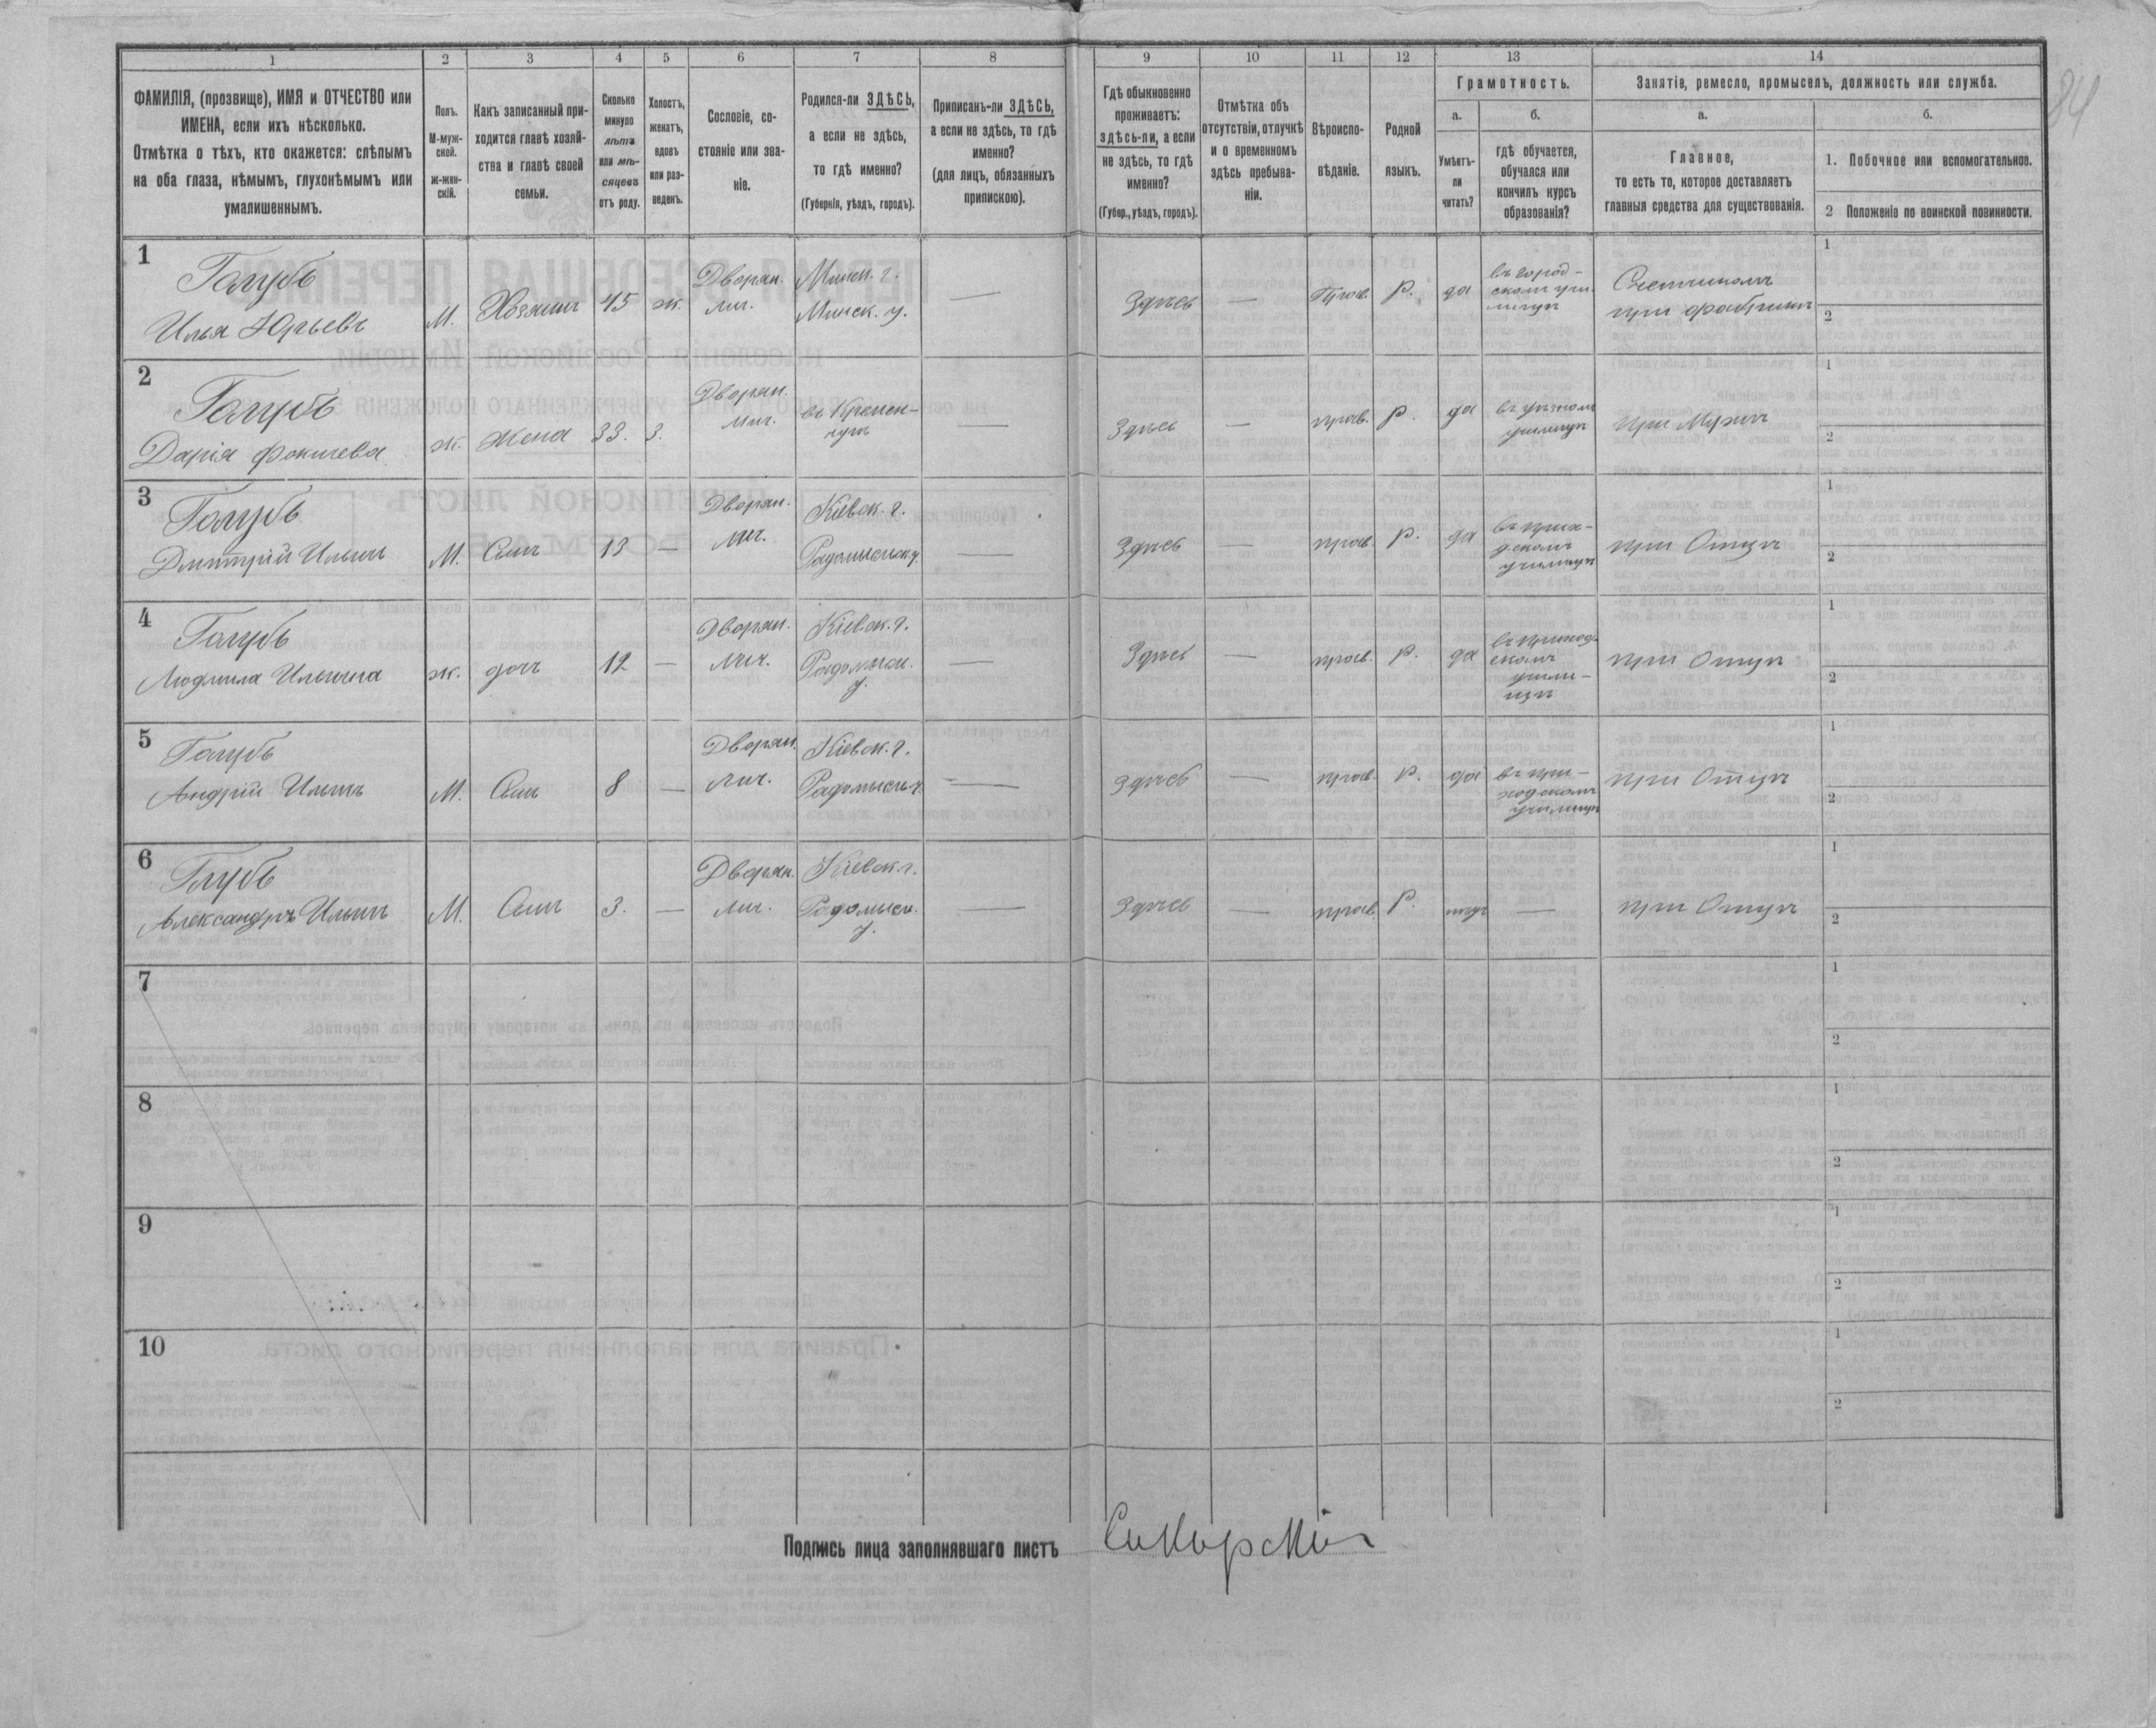 84
1 2 3 4 5 6 7 8 9 10 11 12 13 14
ФАМИЛІЯ, (прозвище), ИМЯ и ОТЧЕСТВО или
ИМЕНА, если ихъ нѣсколько.
Отмѣтка о тѣхъ, кто окажется: слѣпымъ
на оба глаза, нѣмымъ, глухонѣмымъ или
умалишеннымъ.
Полъ.
М-муж-
ской.
ж-жен-
скій.
Какъ записанный при-
ходится главѣ хозяй-
ства и главѣ своей
семьи.
Сколько
минуло
лѣтъ
или мѣ-
сяцевъ
отъ роду.
Холостъ,
женатъ,
вдовъ
или раз-
веденъ.
Сословіе, со-
стояніе или зва-
ніе.
Родился-ли ЗДѢСЬ,
а если не здѣсь,
то гдѣ именно?
(Губернія, уѣздъ, городъ).
Приписанъ-ли ЗДѢСЬ,
а если не здѣсь, то гдѣ
именно?
(для лицъ, обязанныхъ
припискою).
Гдѣ обыкновенно
проживаетъ:
здѣсь-ли, а если
не здѣсь, то гдѣ
именно?
(Губер., уѣздъ, городъ).
Отмѣтка объ
отсутствіи, отлучкѣ
и о временномъ
здѣсь пребыва-
ніи.
Вѣроиспо-
вѣданіе.
Родной
языкъ.
Грамотность.
а.
Умѣетъ-
ли
читать?
б.
гдѣ обучается,
обучался или
кончилъ курсъ
образованія?
Занятіе, ремесло, промыселъ, должность или служба.
а.
Главное,
то есть то, которое доставляетъ
главныя средства для существованія.
б.
1. Побочное или вспомогательное.
2 Положеніе по воинской повинности.
1
Голубь
Илья Юрьевъ
М.
Хозяинъ
45
ж.
Дворян.
лич.
Минск. г.
Минск. у.
—
Здѣсь
—
Прав.
Р.
да
въ город-
скомъ учи-
лищѣ
Счетчикомъ
при фабрикѣ
1
2
2
Голубь
Дарія Фокиева
ж.
жена
33.
З.
Дворян.
лич.
въ Кремен-
чугѣ
—
Здѣсь
—
прав.
Р.
да
въ уѣзном
училищѣ
при Мужѣ
1
2
3
Голубь
Дмитрій Ильинъ
М.
Сынъ
13
—
Дворян.
лич.
Кіевск. г.
Радомысльск. у.
—
Здѣсь
—
прав.
Р.
да
въ прих-
дскомъ
училищѣ
при Отцѣ
1
2
4
Голубь
Людмила Ильина
ж.
дочь
12
—
Дворян.
лич.
Кіевск. г.
Радомысл.
у.
—
Здѣсь
—
прав.
Р.
да
въ приход-
скомъ
учили-
щѣ
при Отцѣ
1
2
5
Голубь
Андрій Ильинъ
М.
Сынъ
8
—
Дворян.
лич.
Кіевск. г.
Радомысл. у.
—
Здѣсь
—
прав.
Р.
да
въ при-
ходскомъ
училищѣ
при Отцѣ
1
2
6
Глубь
Александръ Ильинъ
М.
Сынъ
3.
—
Дворян.
лич.
Кіевск. г.
Радомысл.
у.
—
Здѣсь
—
прав.
Р.
—
при Отцѣ
1
2
7
1
2
8
1
2
9
1
2
10
1
2
Подпись лица заполнявшаго листъ Сикорскій